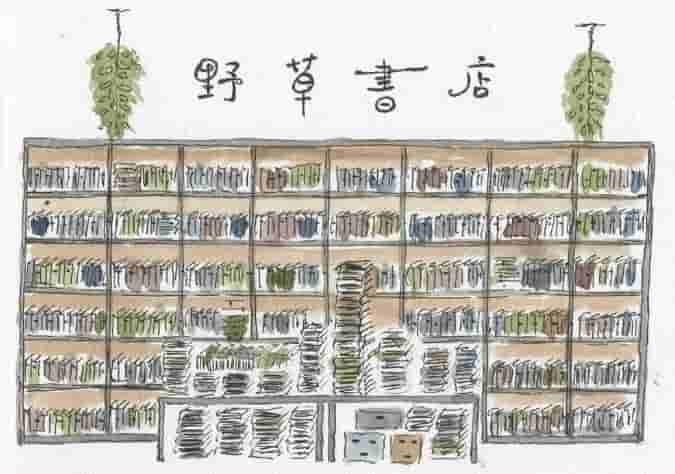 野草書店